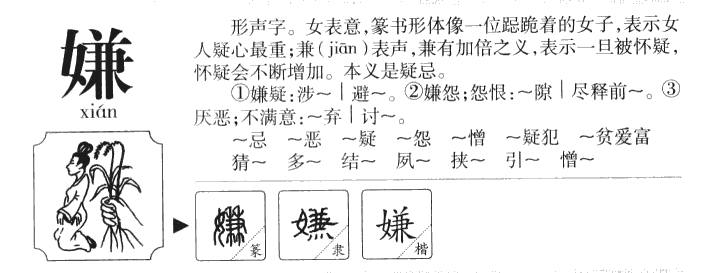 嫌
xián
形声字。女表意,篆书形体像一位跽跪着的女子,表示女
人疑心最重;兼(jiān)表声,兼有加倍之义,表示一旦被怀疑,
怀疑会不断增加。本义是疑忌。
①嫌疑:涉～｜避～。②嫌怨;怨恨:～隙｜尽释前～。③
厌恶;不满意:～弃｜讨～。
～忌 ～恶 ～疑 ～怨 ～憎 ～疑犯 ～贫爱富
猜～ 多～ 结～ 夙～ 挟～ 引～ 憎～
嫌 篆 嫌 隶 嫌 楷